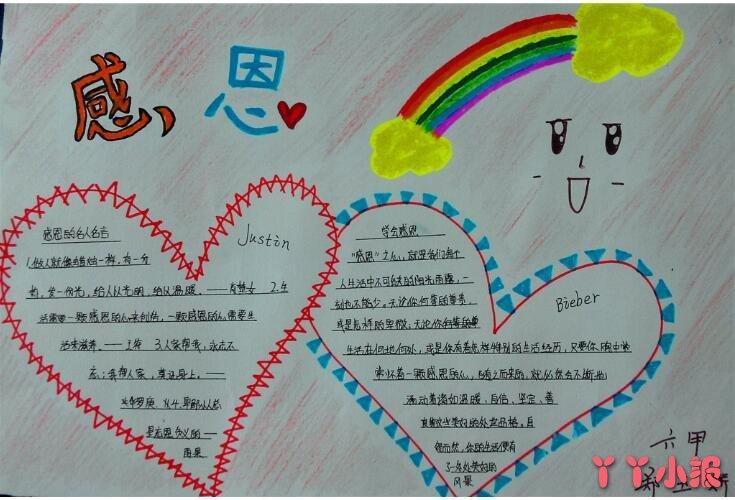 感恩
感恩的名人名言
Justin
1.做人就像蜡烛一样，有一分
热，发一份光，给人以光明，给以温暖。——肖楚女 2.生
活需要一颗感恩的心来创造，一颗感恩的心需要生
活来滋养。——王符 3.人家帮我，永志不
忘；我帮人家，莫记心上。——
华罗庚 4.卑鄙小人总
是忘恩负义的——
雨果
学会感恩
"感恩"之心，就是我们每个
人生活中不可或缺的阳光雨露，一
刻也不能少。无论你何等的尊贵，
或是怎样的卑微；无论你
生活在何地何处，或是你有着怎样特别的生活经历，只要你胸中常
常怀着一颗感恩的心，随之而来的，就必然会不断地
涌动着诸如温暖、自信、坚定、善
良等这些美好的处世品格。自
然而然，你的生活便有
了一处处美好的
风景
Bieber
六甲
丫丫小报